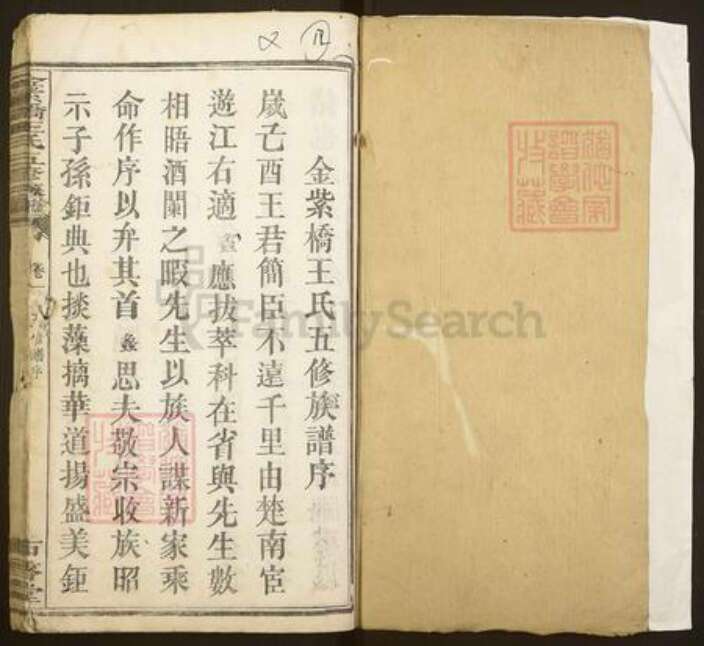 金紫橋王氏五修族譜序
歲己酉王君簡臣不遠千里由楚南宦
遊江右適鑫應拔萃科在省與先生數
相晤酒闌之暇先生以族人謀新家乘
命作序以弁其首鑫思夫敬宗收族昭
示子孫鉅典也掞藻摛華道揚盛美鉅
卷一
FamilySearch